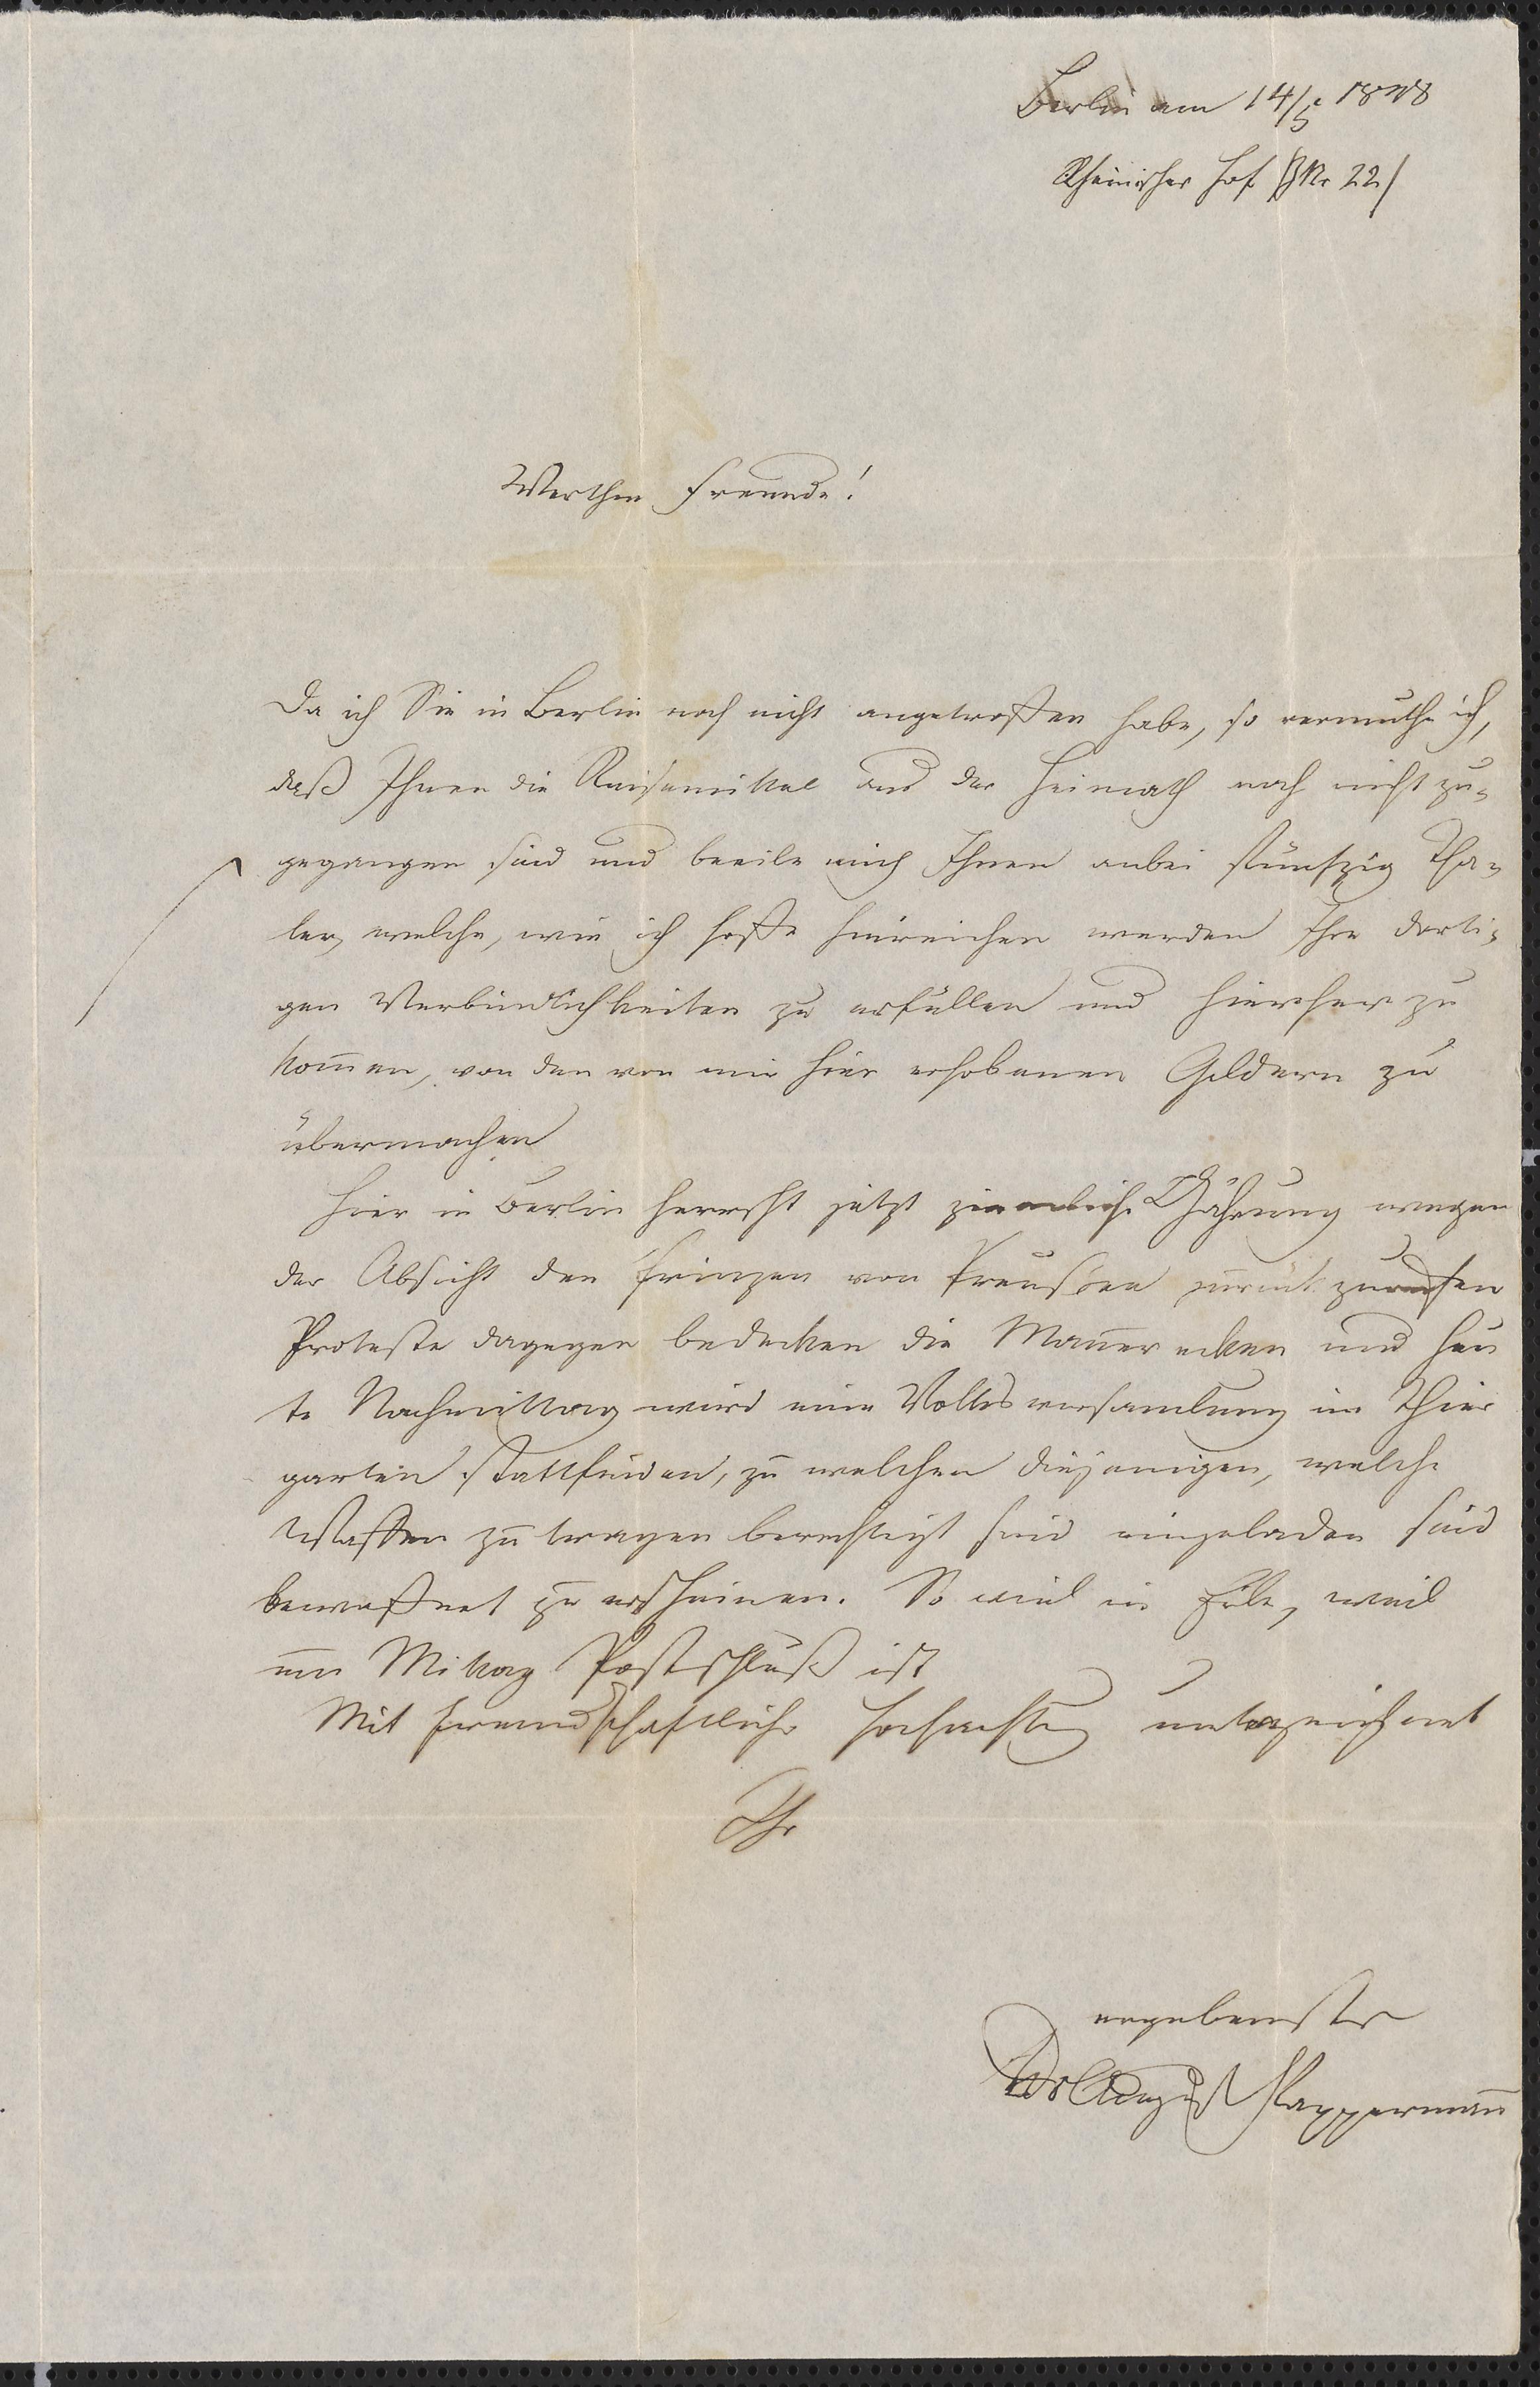 Berlin am 14/5 1848
Rheinischer Hof (Z Nr 22)
Werthe Freunde!
Da ich Sie in Berlin noch nicht angetroffen habe, so vermuthe ich,
daß Ihnen die Reisemittel aus der Heimath noch nicht zu-
gegangen sind und beeile mich Ihnen anbei fünfzig Tha-
ler, welche, wie ich hoffe hinreichen werden Ihre dorti-
gen Verbindlichkeiten zu erfüllen und hierher zu
kom̄en, von den von mir hier erhobenen Geldern zu
übermachen
Hier in Berlin herrscht jetzt ziemliche Gährung wegen
der Absicht den Prinzen von Preussen zurückzurufen
Proteste dagegen bedecken die Mauerecken und heu
te Nachmittag wird eine Volksversamlung im Thier
garten stattfinden, zu welcher diejenigen, welche
Waffen zu tragen berechtigt sind eingeladen sind
bewaffnet zu erscheinen. So viel in Eile, weil
um Mittag Postschluß ist
Mit freundschaftlicher Hochachtung unterzeichnet
Ihr
ergebenster
August